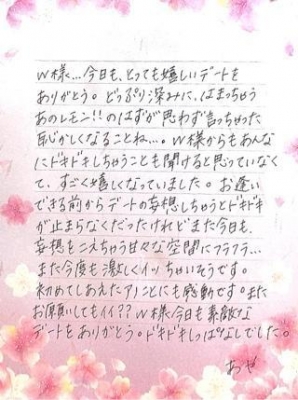 W様…今日も、とっても嬉しいデートを
ありがとう。どっぷり深みに、はまっちゃう
あのレモン!!のはずが思わず言っちゃった
恥かしくなることね…。W様からもあんな
にドキドキしちゃうことも聞けると思っていなく
て、すごく嬉しくなっていました。お逢い
できる前からデートの妄想しちゃうとドキドキ
が止まらなくだったけれどまた今日も、
妄想をこえちゃう甘々な空間にフラフラ…
また今度も激しくイッちゃいそうです。
初めてしあえたアノことにも感動です。また
お願いしてもイイ??W様今日も素敵な
デートをありがとう。ドキドキしっぱなしでした。
あや